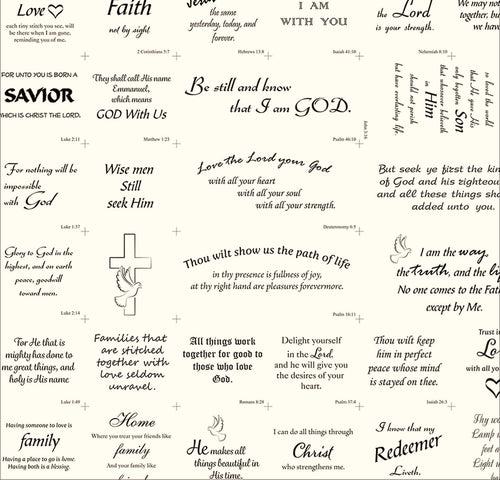 Love
each tiny stitch you see, will
be there when I am gone,
reminding you of me.
Faith
not by sight
2 Corinthians 5:7
the same
yesterday, today, and
forever.
Hebrews 13:8
I AM
WITH YOU
Isaiah 41:10
the Lord
is your strength.
Nehemiah 8:10
We may not
together, but
we ha
FOR UNTO YOU IS BORN A
SAVIOR
WHICH IS CHRIST THE LORD.
Luke 2:11
They shall call His name
Emmanuel,
which means
GOD With Us
Matthew 1:23
Be still and know
that I am GOD.
Psalm 46:10
so loved the world
that He gave His
only begotten Son
that whosoever believeth
in Him
should not perish
but have everlasting life.
John 3:16
For nothing will be
impossible
with God
Luke 1:37
Wise men
Still
seek Him
Love the Lord your God
with all your heart
with all your soul
with all your strength.
Deuteronomy 6:5
But seek ye first the kin
of God and his righteou
and all these things sha
added unto you.
Glory to God in the
highest, and on earth
peace, goodwill
toward men.
Luke 2:14
Thou wilt show us the path of life
in thy presence is fullness of joy,
at thy right hand are pleasures forevermore.
Psalm 16:11
I am the way,
the truth, and the li
No one comes to the Fath
except by Me.
For He that is
mighty has done to
me great things, and
holy is His name
Luke 1:49
Families that
are stitched
together with
love seldom
unravel.
All things work
together for good to
those who love
God.
Romans 8:28
Delight yourself
in the Lord,
and he will give you
the desires of your
heart.
Psalm 37:4
Thou wilt keep
him in perfect
peace whose mind
is stayed on thee.
Isaiah 26:3
Trust i
Lo
with all yo
Having someone to love is
family
Having a place to go is home.
Having both is a blessing.
Home
Where you treat your friends like
family
And your family like
He makes all
things beautiful in
His time.
I can do all things through
Christ
who strengthens me.
I know that my
Redeemer
Liveth.
Thy wo
Lamp
feet a